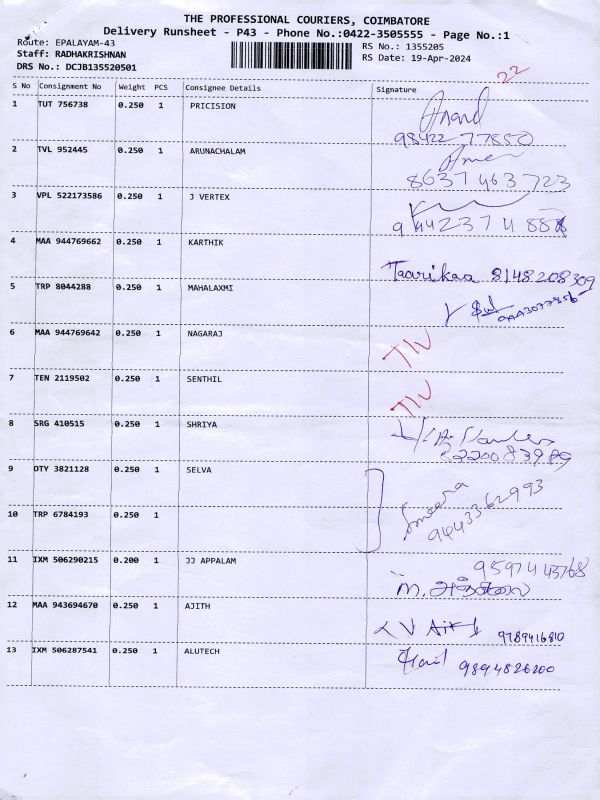 THE PROFESSIONAL COURIERS, COIMBATORE
Delivery Runsheet - P43 - Phone No.:0422-3505555 - Page No.:1
Route: EPALAYAM-43
RS No.: 1355205
Staff: RADHAKRISHNAN
RS Date: 19-Apr-2024
DRS No.: DCJB135520501
22
S No Consignment No Weight PCS Consignee Details Signature
1 TUT 756738 0.250 1 PRICISION Anand
98422 77850
2 TVL 952445 0.250 1 ARUNACHALAM
8637 463 723
3 VPL 522173586 0.250 1 J VERTEX
4 MAA 944769662 0.250 1 KARTHIK Taarikaa 8148208309
5 TRP 8044288 0.250 1 MAHALAXMI
6 MAA 944769642 0.250 1 NAGARAJ
7 TEN 2119502 0.250 1 SENTHIL
8 SRG 410515 0.250 1 SHRIYA
9 OTY 3821128 0.250 1 SELVA
10 TRP 6784193 0.250 1 9443362993
11 IXM 506290215 0.200 1 JJ APPALAM 9597443768
12 MAA 943694670 0.250 1 AJITH 9789416810
13 IXM 506287541 0.250 1 ALUTECH 9894826200